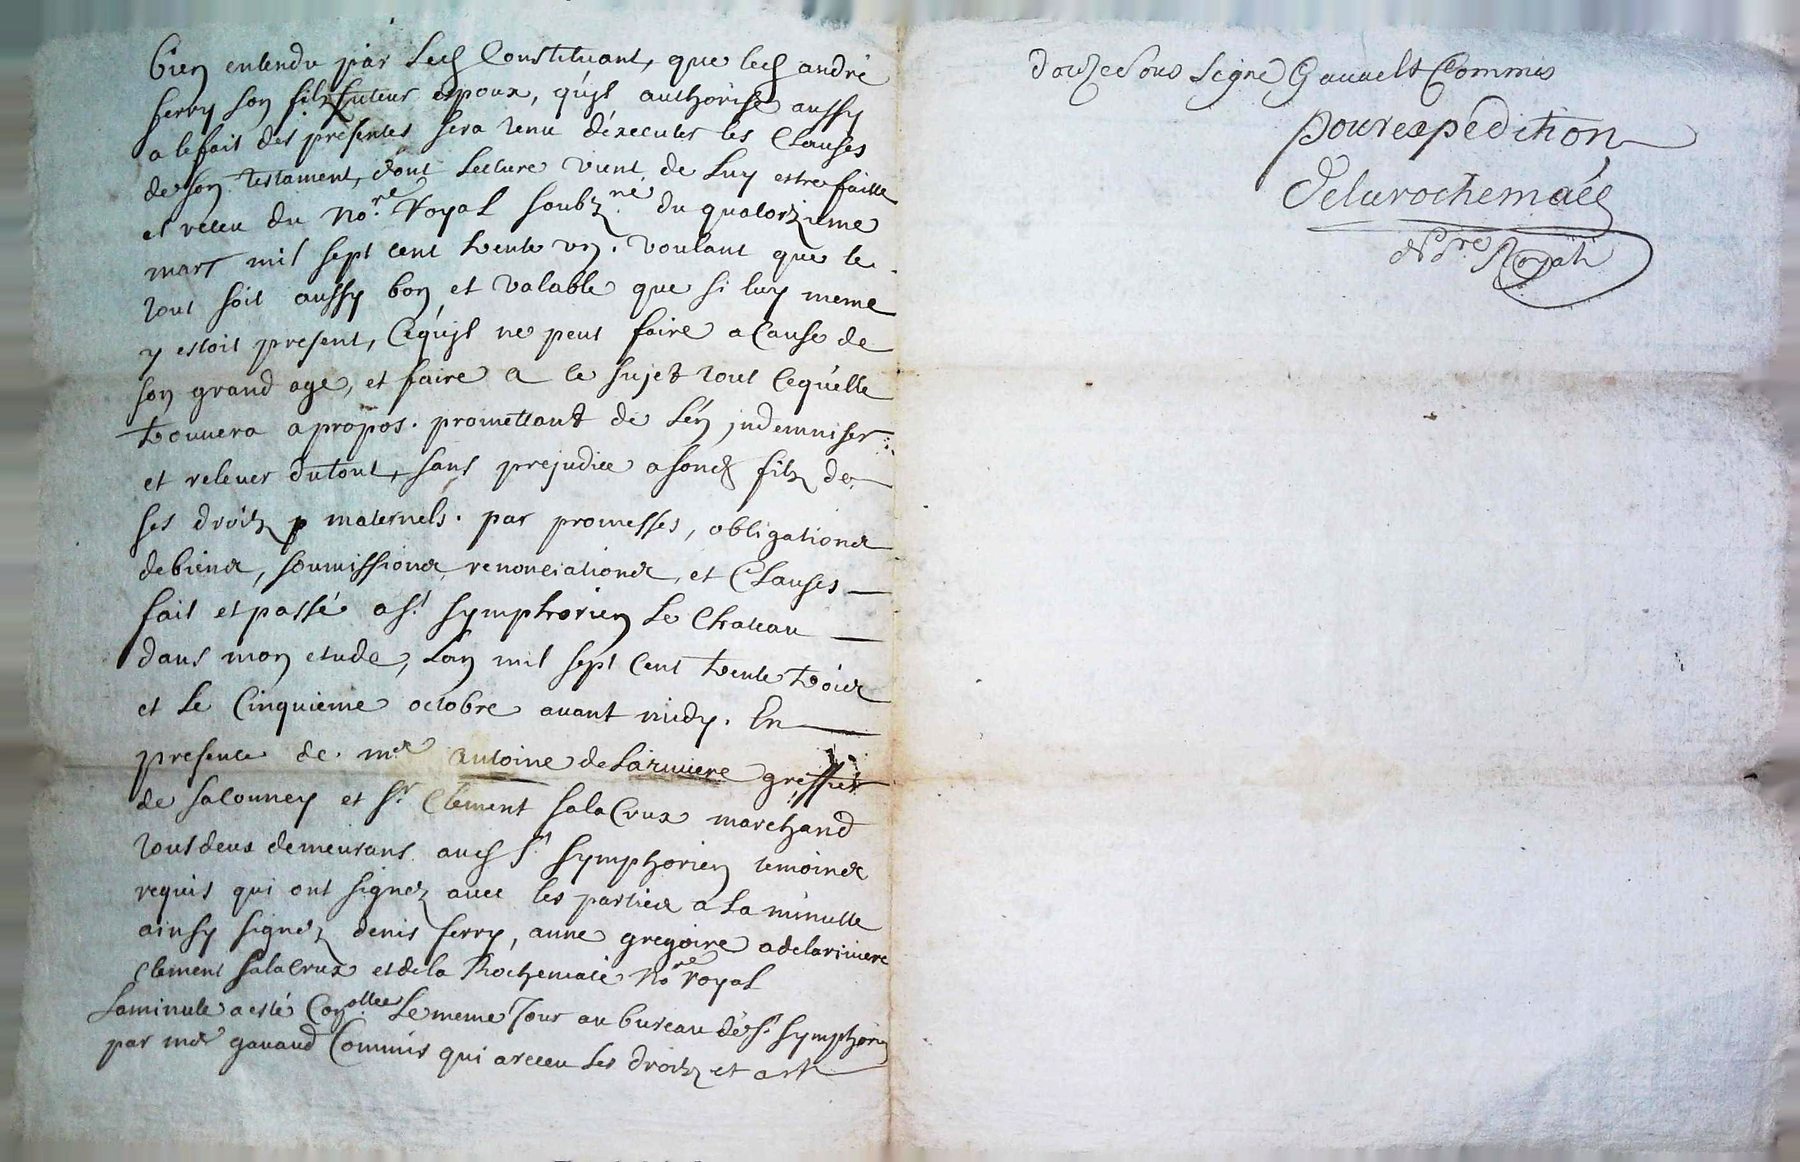 bien entendu par Led Constituant, que led andré
ferry son filz futeur espoux, qu'yl authorise aussy
a le fait des presentes sera tenu d'éxecuter les Clauses
de son testament, dont Lecture vient de Luy estre faitte
et receu du No.re Royal soubz.né du quatorzieme
mars mil sept cent trente un. voulant que le
tout soit aussy bon et valable que si luy meme
y estoit present, Cequ'yl ne peut faire a Cause de
son grand age, et faire a ce sujet tout Cequ'elle
trouvera apropos. promettant de L'én jndemniser
et relever dutout, sans prejudice a sond filz de
ses droitz maternels. par promesses, obligations
debiens, soumissions, renonciations, et Clauses
fait et passé a St. Symphorien Le Chateau
dans mon etude, Lan mil sept Cent trente trois
et Le Cinquieme octobre avant midy. En
presence de mr antoine deLariviere greffier
de Salonney et Sr. Clement SalaCrux marchand
tousdeux demeurans aud St Symphorien temoins
requis qui ont signez avec les parties a La minutte
ainsy signéz denis ferry, anne gregoire adelariviere
Clement SalaCrux et de la Rochemaié No.re royal
Laminute a esté Con.ollee Le meme Jour au bureau dé St Symphorien
par mr gavaud Commis qui areceu Les droitz et
douze sous Signé Gavaelt Commis
pour expedition
Delarochemaée
No.re Royal